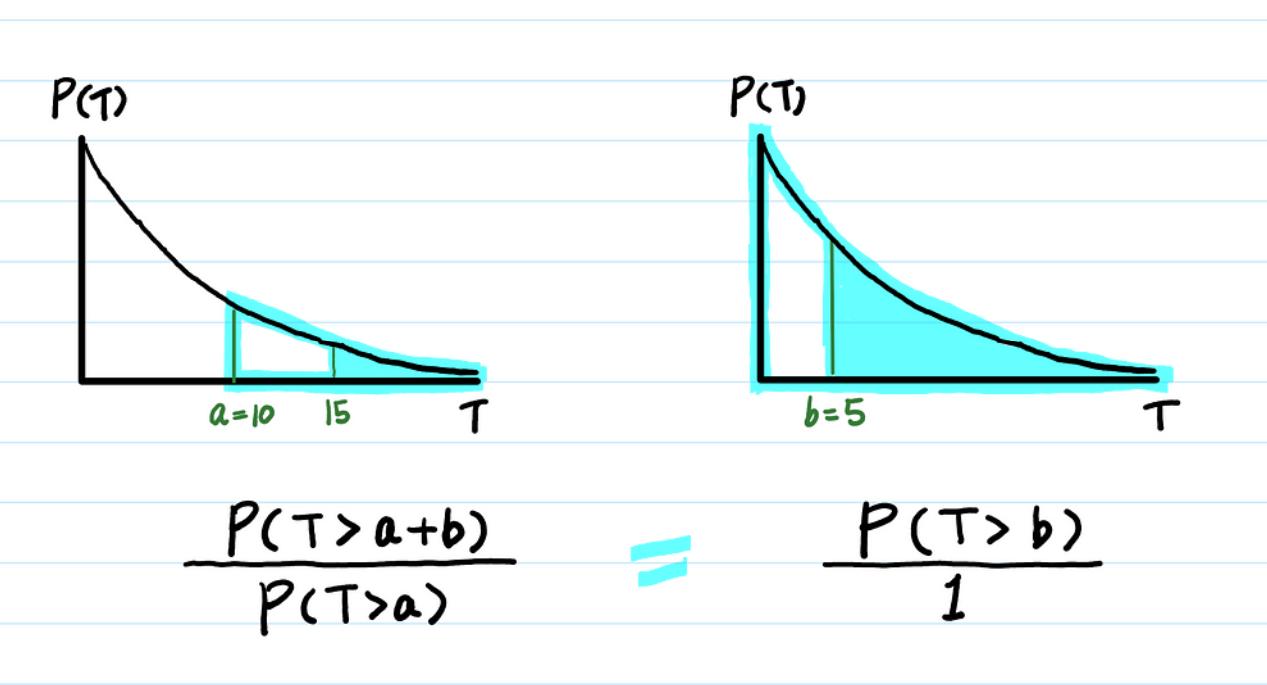 P(T)
P(T)
a=10
15
T
b=5
T
P(T>a+b)
P(T>a)
=
P(T>b)
1